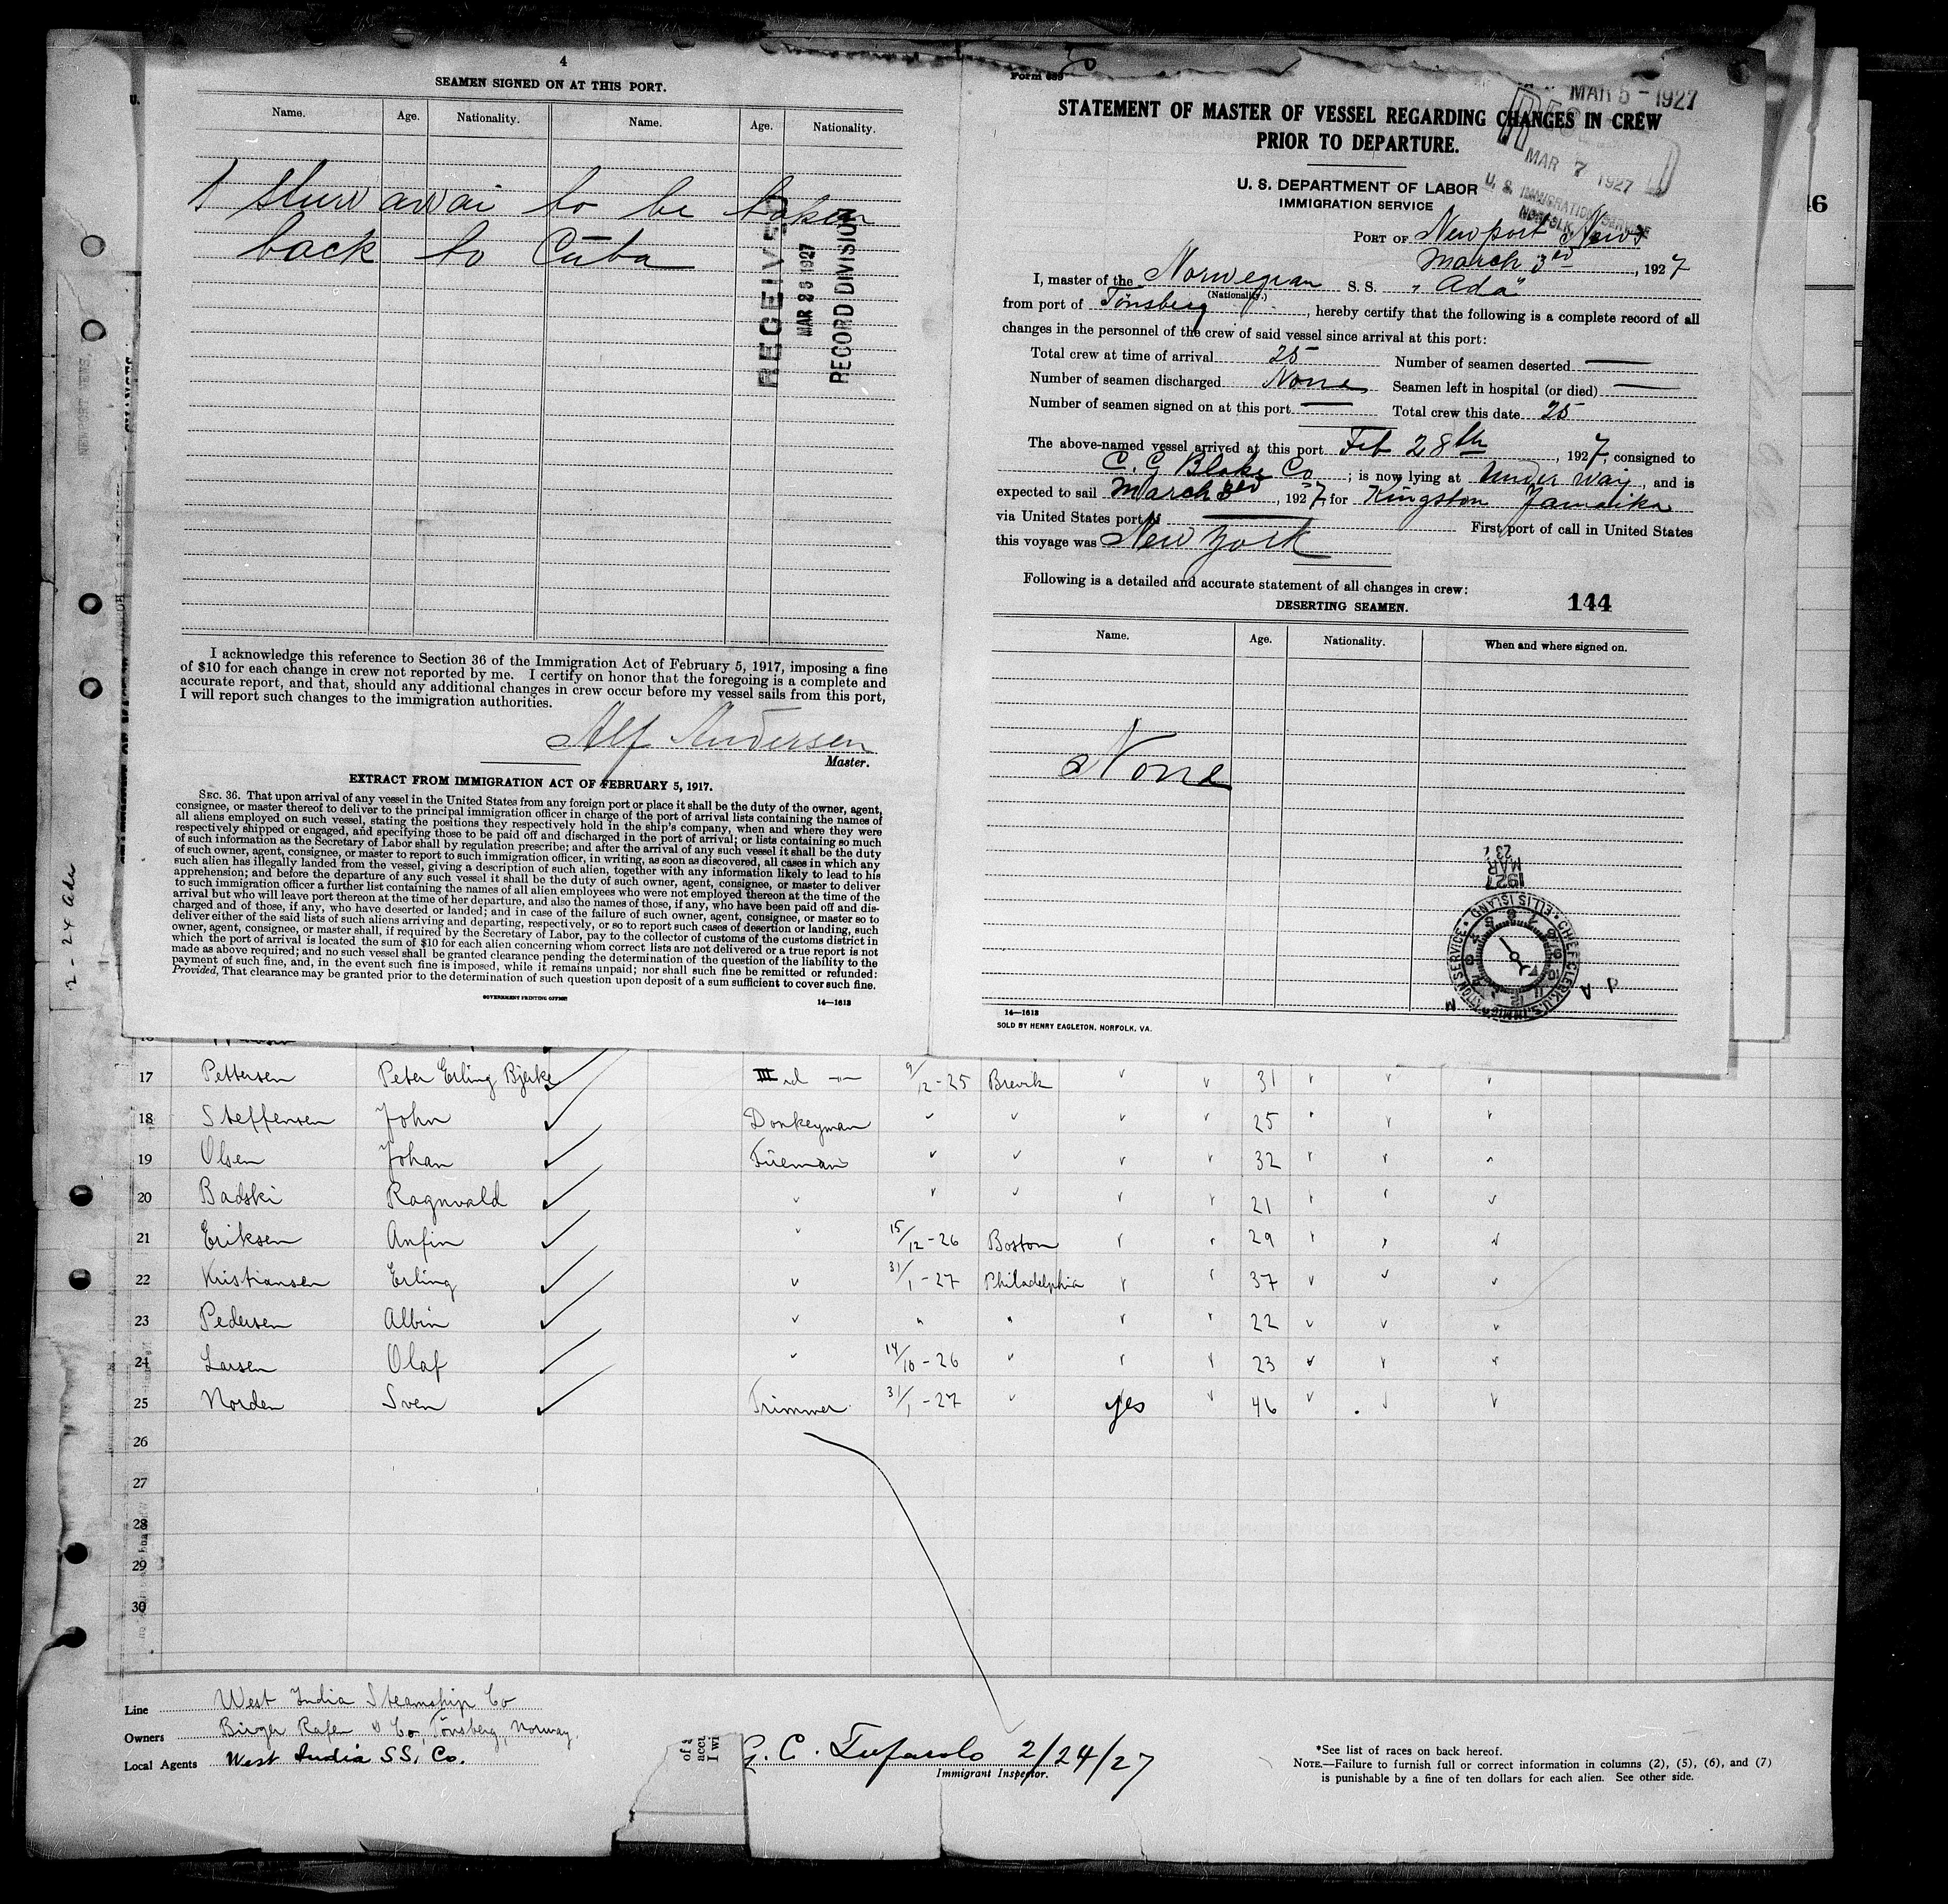 4
SEAMEN SIGNED ON AT THIS PORT.
Name. Age. Nationality. Name. Age. Nationality.
1 Stuw awai to be taken
back to Cuba
RECEIVED
MAR 26 1927
RECORD DIVISION
I acknowledge this reference to Section 36 of the Immigration Act of February 5, 1917, imposing a fine
of $10 for each change in crew not reported by me. I certify on honor that the foregoing is a complete and
accurate report, and that, should any additional changes in crew occur before my vessel sails from this port,
I will report such changes to the immigration authorities.
Alf Andersen
Master.
EXTRACT FROM IMMIGRATION ACT OF FEBRUARY 5, 1917.
SEC. 36. That upon arrival of any vessel in the United States from any foreign port or place it shall be the duty of the owner, agent,
consignee, or master thereof to deliver to the principal immigration officer in charge of the port of arrival lists containing the names of
all aliens employed on such vessel, stating the positions they respectively hold in the ship's company, when and where they were
respectively shipped or engaged, and specifying those to be paid off and discharged in the port of arrival; or lists containing so much
of such information as the Secretary of Labor shall by regulation prescribe; and after the arrival of any such vessel it shall be the duty
of such owner, agent, consignee, or master to report to such immigration officer, in writing, as soon as discovered, all cases in which any
such alien has illegally landed from the vessel, giving a description of such alien, together with any information likely to lead to his
apprehension; and before the departure of any such vessel it shall be the duty of such owner, agent, consignee, or master to deliver
to such immigration officer a further list containing the names of all alien employees who were not employed thereon at the time of the
arrival but who will leave port thereon at the time of her departure, and also the names of those, if any, who have been paid off and dis-
charged and of those, if any, who have deserted or landed; and in case of the failure of such owner, agent, consignee, or master so to
deliver either of the said lists of such aliens arriving and departing, respectively, or so to report such cases of desertion or landing, such
owner, agent, consignee, or master shall, if required by the Secretary of Labor, pay to the collector of customs of the customs district in
which the port of arrival is located the sum of $10 for each alien concerning whom correct lists are not delivered or a true report is not
made as above required; and no such vessel shall be granted clearance pending the determination of the question of the liability to the
payment of such fine, and, in the event such fine is imposed, while it remains unpaid; nor shall such fine be remitted or refunded:
Provided, That clearance may be granted prior to the determination of such question upon deposit of a sum sufficient to cover such fine.
GOVERNMENT PRINTING OFFICE 14—1613
Form 689
MAR 5 - 1927
STATEMENT OF MASTER OF VESSEL REGARDING CHANGES IN CREW
PRIOR TO DEPARTURE.
MAR 7 1927
U. S. IMMIGRATION SERVICE
NORFOLK
U. S. DEPARTMENT OF LABOR
IMMIGRATION SERVICE
PORT OF Newport News
March 3rd, 1927
I, master of the Norwegian S. S. "Ada"
(Nationality.)
from port of Tönsberg, hereby certify that the following is a complete record of all
changes in the personnel of the crew of said vessel since arrival at this port:
Total crew at time of arrival 25 Number of seamen deserted —
Number of seamen discharged None Seamen left in hospital (or died) —
Number of seamen signed on at this port — Total crew this date 25
The above-named vessel arrived at this port Feb 28th, 1927, consigned to
C. G Blake Co; is now lying at Under way, and is
expected to sail March 3rd, 1927, for Kingston Jamaika
via United States port of — First port of call in United States
this voyage was New York
Following is a detailed and accurate statement of all changes in crew:
DESERTING SEAMEN. 144
Name. Age. Nationality. When and where signed on.
None
1927 MAR 23
CHIEF CLERK U.S. IMMIGRATION SERVICE • ELLIS ISLAND •
14—1613
SOLD BY HENRY EAGLETON, NORFOLK, VA.
46
2-24 Ada
17 Pettersen Peter Erling Bjerke III rd 9/12-25 Brevik 31
18 Steffensen John Donkeyman 25
19 Olsen Johan Fireman 32
20 Badski Ragnvald 21
21 Eriksen Anfin 15/12-26 Boston 29
22 Kristiansen Erling 31/1-27 Philadelphia 37
23 Pedersen Albin " " 22
24 Larsen Olaf 14/10-26 23
25 Norden Sven Trimmer 31/1-27 yes 46
26
27
28
29
30
Line West India Steamship Co
Owners Birger Rafen & Co, Tönsberg, Norway
Local Agents West India SS. Co.
G. C. Tufarolo 2/24/27
Immigrant Inspector.
*See list of races on back hereof.
NOTE.—Failure to furnish full or correct information in columns (2), (5), (6), and (7)
is punishable by a fine of ten dollars for each alien. See other side.